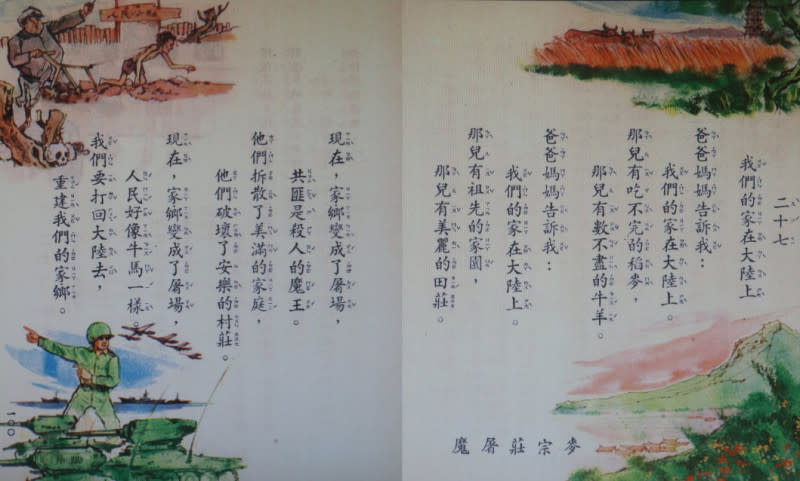 二十七
我們的家在大陸上
爸爸媽媽告訴我：
我們的家在大陸上。
那兒有吃不完的稻麥，
那兒有數不盡的牛羊。
爸爸媽媽告訴我：
我們的家在大陸上。
那兒有祖先的家園，
那兒有美麗的田莊。
麥宗莊屠魔
人民公社
現在，家鄉變成了屠場，
共匪是殺人的魔王。
他們拆散了美滿的家庭，
他們破壞了安樂的村莊。
現在，家鄉變成了屠場，
人民好像牛馬一樣。
我們要打回大陸去，
重建我們的家鄉。
一〇〇